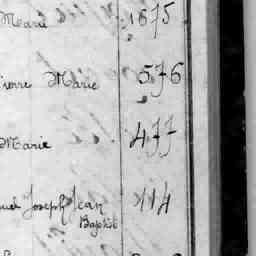 Marie 1675
Pierre Marie 576
Marie 477
Joseph Jean 114
Baptist